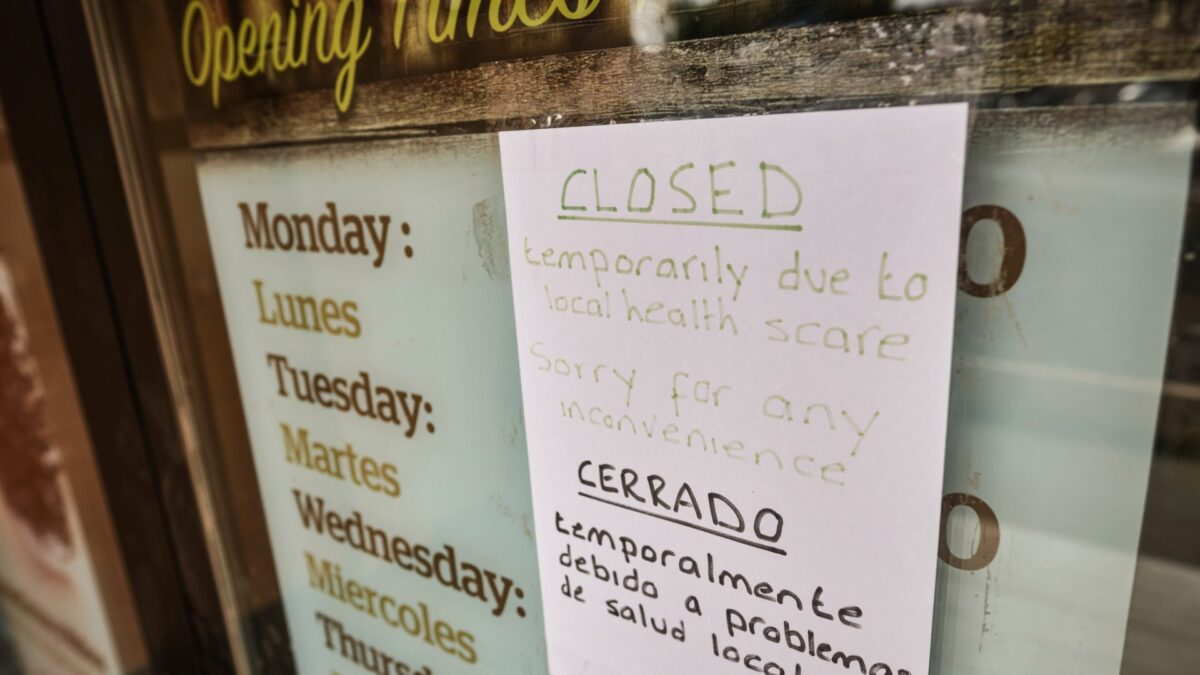 Opening Times
Monday :
Lunes
Tuesday:
Martes
Wednesday:
Miercoles
Thursd
CLOSED
temporarily due to
local health scare
Sorry for any
inconvenience
CERRADO
temporalmente
debido a problemas
de salud local
0
0